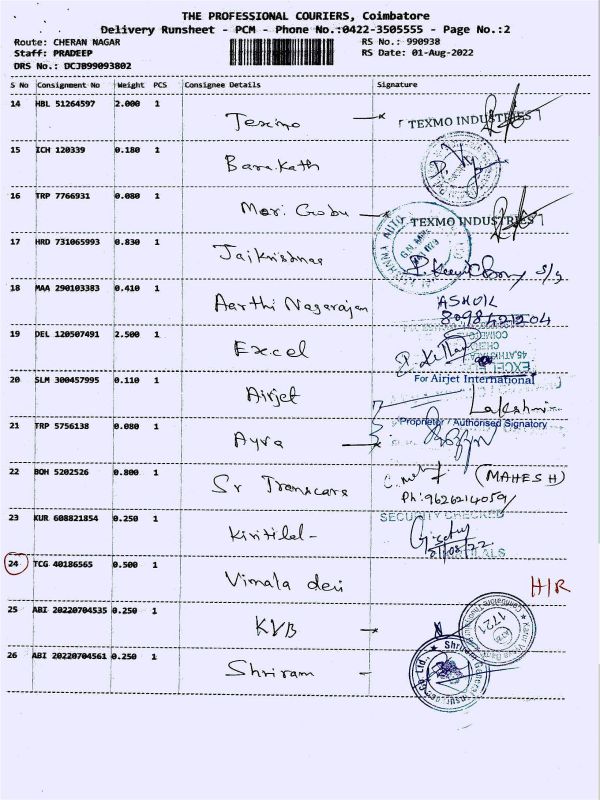 THE PROFESSIONAL COURIERS, Coimbatore
Delivery Runsheet - PCM - Phone No.:0422-3505555 - Page No.:2
Route: CHERAN NAGAR
RS No.: 990938
Staff: PRADEEP
RS Date: 01-Aug-2022
DRS No.: DCJB99093802
S No Consignment No Weight PCS Consignee Details Signature
14 HBL 51264597 2.000 1
Texmo
TEXMO INDUSTRIES
15 ICH 120339 0.180 1
Barakath
16 TRP 7766931 0.080 1
Mari Gobu
TEXMO INDUSTRIES
17 HRD 731065993 0.830 1
Jaikrishnaa
18 MAA 290103383 0.410 1
Aarthi Nagarajan
ASHOK
8098421204
19 DEL 120507491 2.500 1
Excel
20 SLM 300457995 0.110 1
Airjet
For Airjet International
Lakshmi
Proprietor / Authorised Signatory
21 TRP 5756138 0.080 1
Ayra
22 BOM 5202526 0.800 1
Sr Transcars
(MAHESH)
Ph: 9626214059
23 KUR 608821854 0.250 1
Kiritilal
SECURITY CHECKED
24 TCG 40186565 0.500 1
Vimala devi
H/R
25 ABI 20220704535 0.250 1
KVB
1721
26 ABI 20220704561 0.250 1
Shriram